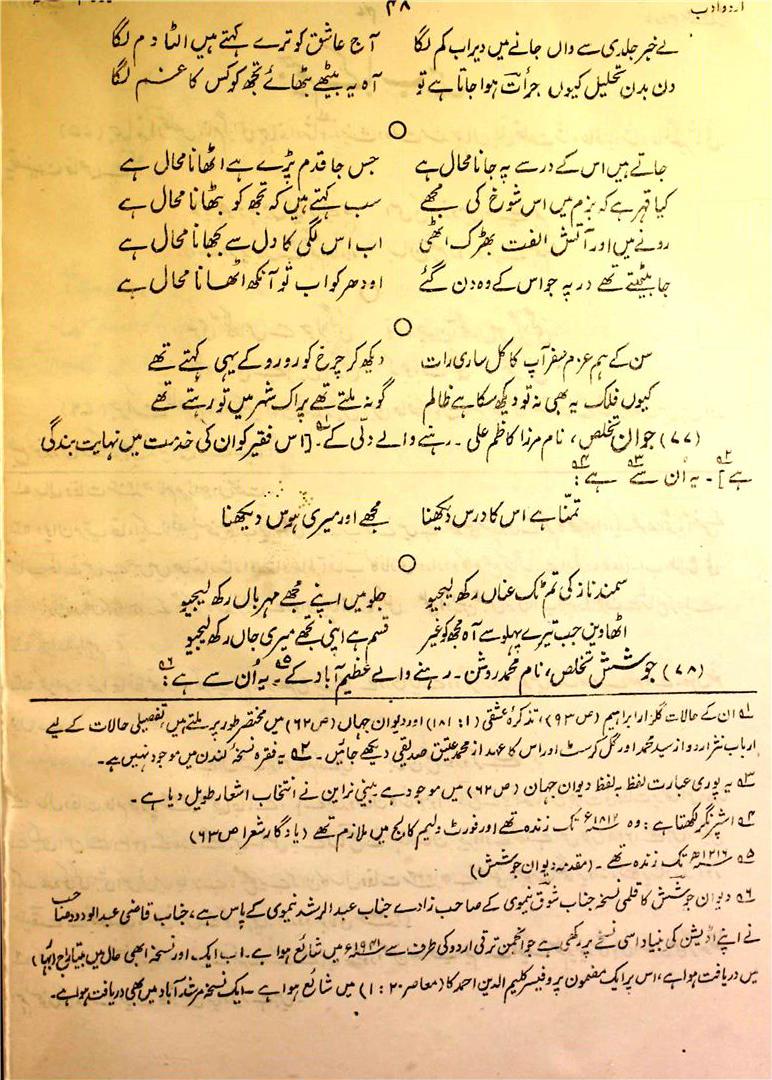 اردو ادب
۴۸
بے خبر جلدی سے واں جانے میں دیر اب کم لگا آج عاشق کو ترے کہتے ہیں الٹا دم لگا
دن بدن تحلیل کیوں جرأت ہوا جاتا ہے تو آہ یہ بیٹھے بٹھائے تجھ کو کس کا غم لگا
جاتے ہیں اس کے در سے پہ جانا محال ہے جس جا قدم پڑے ہے اٹھانا محال ہے
کیا قہر ہے کہ بزم میں اس شوخ کی مجھے سب کہتے ہیں کہ تجھ کو بٹھانا محال ہے
رونے میں اور آتش الفت بھڑک اٹھی اب اس لگی کا دل سے بجھانا محال ہے
جا بیٹھتے تھے در پہ جو اس کے وہ دن گئے اودھر کو اب تو آنکھ اٹھانا محال ہے
سن کے ہم عزم سفر آپ کا کل ساری رات دیکھ کر چرخ کو رو رو کے یہی کہتے تھے
کیوں فلک یہ بھی نہ تو دیکھ سکا ہے ظالم گو نہ ملتے تھے پر اک شہر میں تو رہتے تھے
(۷۷) جوان تخلص، نام مرزا کاظم علی ۔ رہنے والے دلّی کے۔۵۱ [اس فقیر کو ان کی خدمت میں نہایت بندگی
۵۲ ہے]۔ یہ اُن سے ۵۳ ہے ۵۴:
تمنّا ہے اس کا درس دیکھنا مجھے اور میری ہوس دیکھنا
سمند ناز کی تم ٹک عناں رکھ لیجیو جلو میں اپنے مجھے مہرباں رکھ لیجیو
اٹھاویں جب تیرے پہلو سے آہ مجھ کو غیر قسم ہے اپنی تجھے میری جاں رکھ لیجیو
(۷۸) جوشش تخلص، نام محمد روشن ۔ رہنے والے عظیم آباد کے۵۵۔ یہ اُن سے ہے ۵۶:
۵۱ ان کے حالات گلزار ابراہیم (ص ۹۳)، تذکرۂ عشقی (۱: ۱۸۱) اور دیوان جہاں (ص ۶۲) میں مختصر طور پر ملتے ہیں، تفصیلی حالات کے لیے
ارباب نثر اردو از سید محمد اور گل کرسٹ اور اس کا عہد از محمد عتیق صدیقی دیکھے جائیں۔ ۵۲ یہ فقرہ نسخۂ لندن میں موجود نہیں ہے۔
۵۳ یہ پوری عبارت لفظ بہ لفظ دیوان جہان (ص ۶۲) میں موجود ہے بینی نراین نے انتخاب اشعار طویل دیا ہے۔
۵۴ اشپرنگر لکھتا ہے: وہ ۱۸۱۲ء تک زندہ تھے اور فورٹ ولیم کالج میں ملازم تھے (یادگار شعرا ص ۶۳)
۵۵ ۱۲۱۶ھ تک زندہ تھے۔ (مقدمہ دیوان جوشش)
۵۶ دیوان جوشش کا قلمی نسخہ جناب شوق نیموی کے صاحب زادے جناب عبد الرشد نیموی کے پاس ہے، جناب قاضی عبد الودود صاحب
نے اپنے اڈیشن کی بنیاد اسی نسخے پر رکھی ہے جو انجمن ترقی اردو کی طرف سے ۱۹۴۱ء میں شائع ہوا ہے۔ اب ایک اور نسخہ ابھی حال میں (بہار)
میں دریافت ہوا ہے، اس پر ایک مضمون پروفیسر کلیم الدین احمد کا (معاصر ۲۰: ۱) میں شائع ہوا ہے ۔ ایک نسخہ مرشد آباد میں بھی دریافت ہوا ہے۔